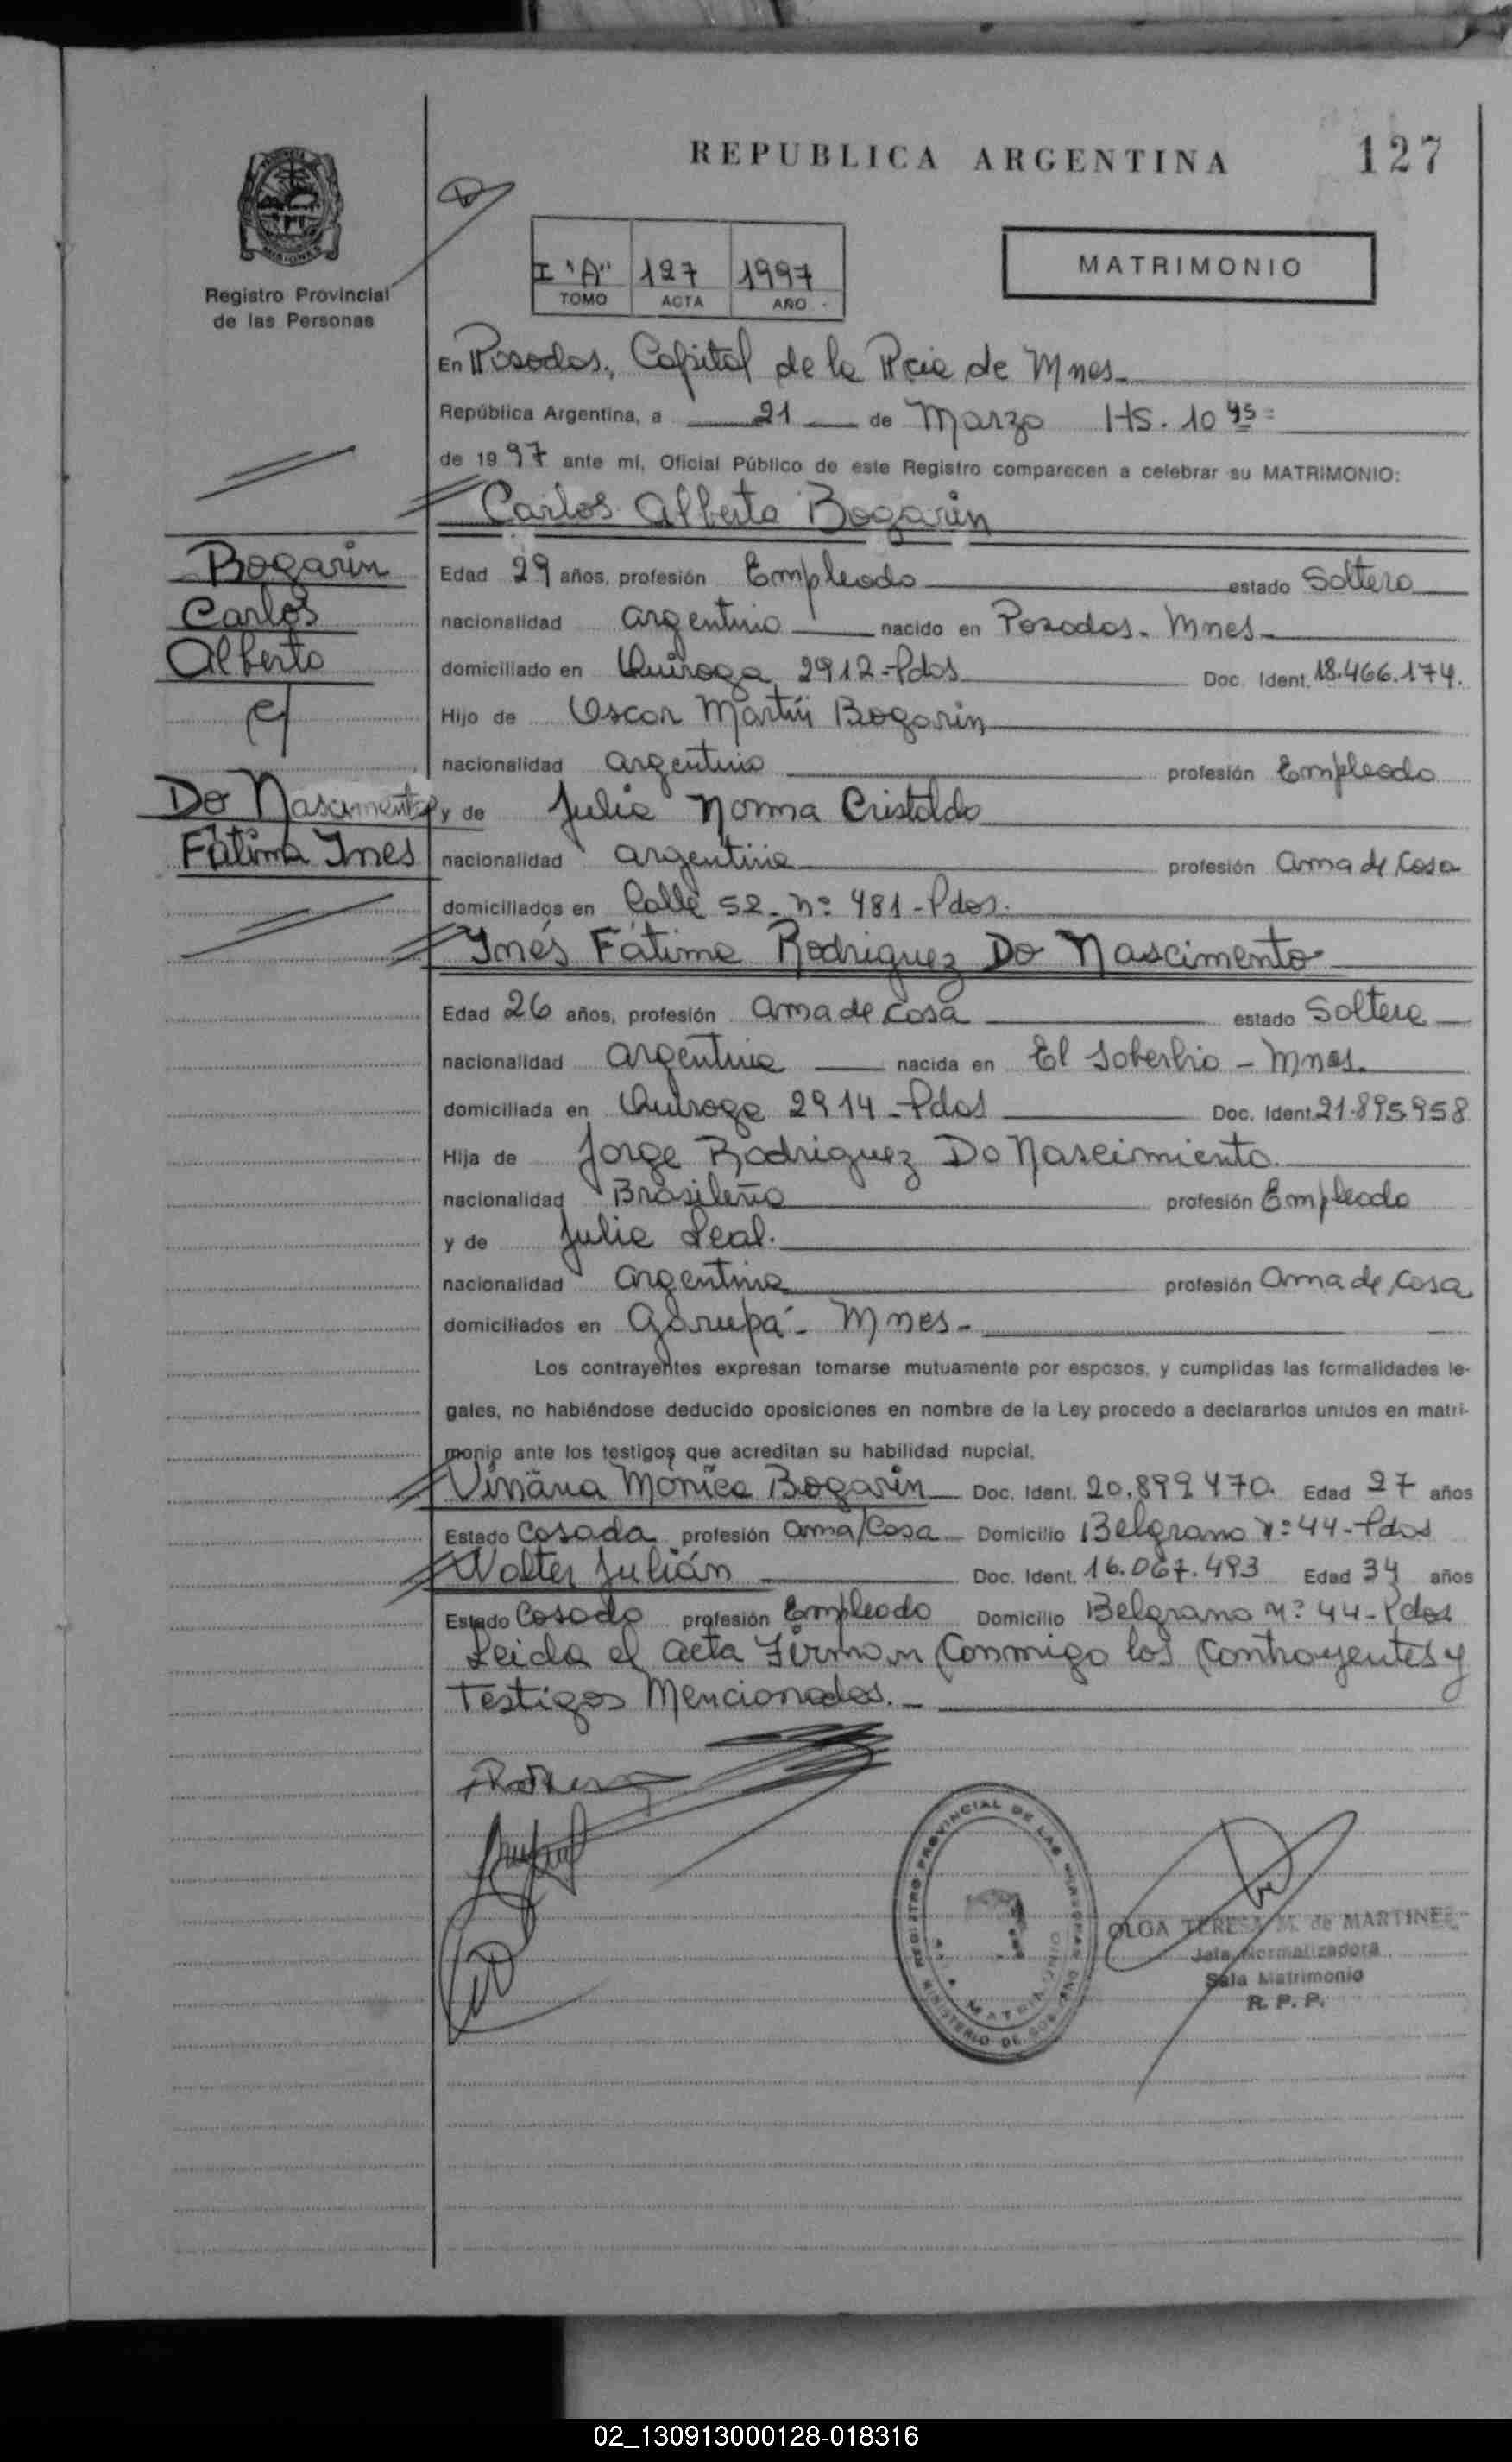 REPUBLICA ARGENTINA
127
MISIONES
Registro Provincial
de las Personas
I "A" 127 1997
TOMO ACTA AÑO
MATRIMONIO
En Posadas, Capital de la Pcia de Mnes
República Argentina, a 21 de Marzo Hs. 10 45
de 1997 ante mí, Oficial Público de este Registro comparecen a celebrar su MATRIMONIO:
Carlos Alberto Bogarin
Bogarin
Carlos
Alberto
c/
Do Nascimento
Fátima Ines
Edad 29 años, profesión Empleado estado Soltero
nacionalidad argentino nacido en Posadas - Mnes
domiciliado en Quiroga 2912 - Pdas Doc. Ident. 18.466.174.
Hijo de Oscar Martín Bogarin
nacionalidad argentino profesión Empleado
y de Julia Norma Cristaldo
nacionalidad argentina profesión ama de Casa
domiciliados en Calle 52 - Nº 481 - Pdas.
Ynés Fátima Rodriguez Do Nascimento
Edad 26 años, profesión ama de Casa estado Soltera
nacionalidad argentina nacida en El Soberbio - Mnes.
domiciliada en Quiroga 2914 - Pdas Doc. Ident. 21.895.958
Hija de Jorge Rodriguez Do Nascimiento
nacionalidad Brasileño profesión Empleado
y de Julia Leal.
nacionalidad argentina profesión ama de Casa
domiciliados en Garupá - Mnes -
Los contrayentes expresan tomarse mutuamente por esposos, y cumplidas las formalidades le-
gales, no habiéndose deducido oposiciones en nombre de la Ley procedo a declararlos unidos en matri-
monio ante los testigos que acreditan su habilidad nupcial.
Mónica Bogarin Doc. Ident. 20.899.470. Edad 27 años
Estado Casada profesión ama/Casa Domicilio Belgrano Nº 44 - Pdas
Walter Julián Doc. Ident. 16.067.493 Edad 34 años
Estado Casado profesión Empleado Domicilio Belgrano Nº 44 - Pdas
Leida el acta Firman Conmigo los Contrayentes y
Testigos Mencionados.
REGISTRO PROVINCIAL DE LAS PERSONAS
MINISTERIO DE GOBIERNO
MATRIMONIO
OLGA TERESA M. de MARTINEZ
Jefa Normalizadora
Sala Matrimonio
R. P. P.
02_130913000128-018316